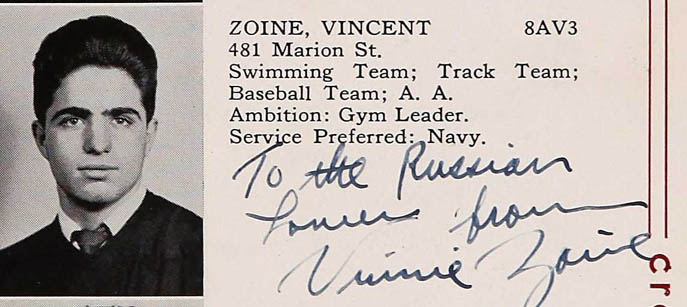 ZOINE, VINCENT 8AV3
481 Marion St.
Swimming Team; Track Team;
Baseball Team; A. A.
Ambition: Gym Leader.
Service Preferred: Navy.
To the Russian
from
Vinnie Zoine
Cr